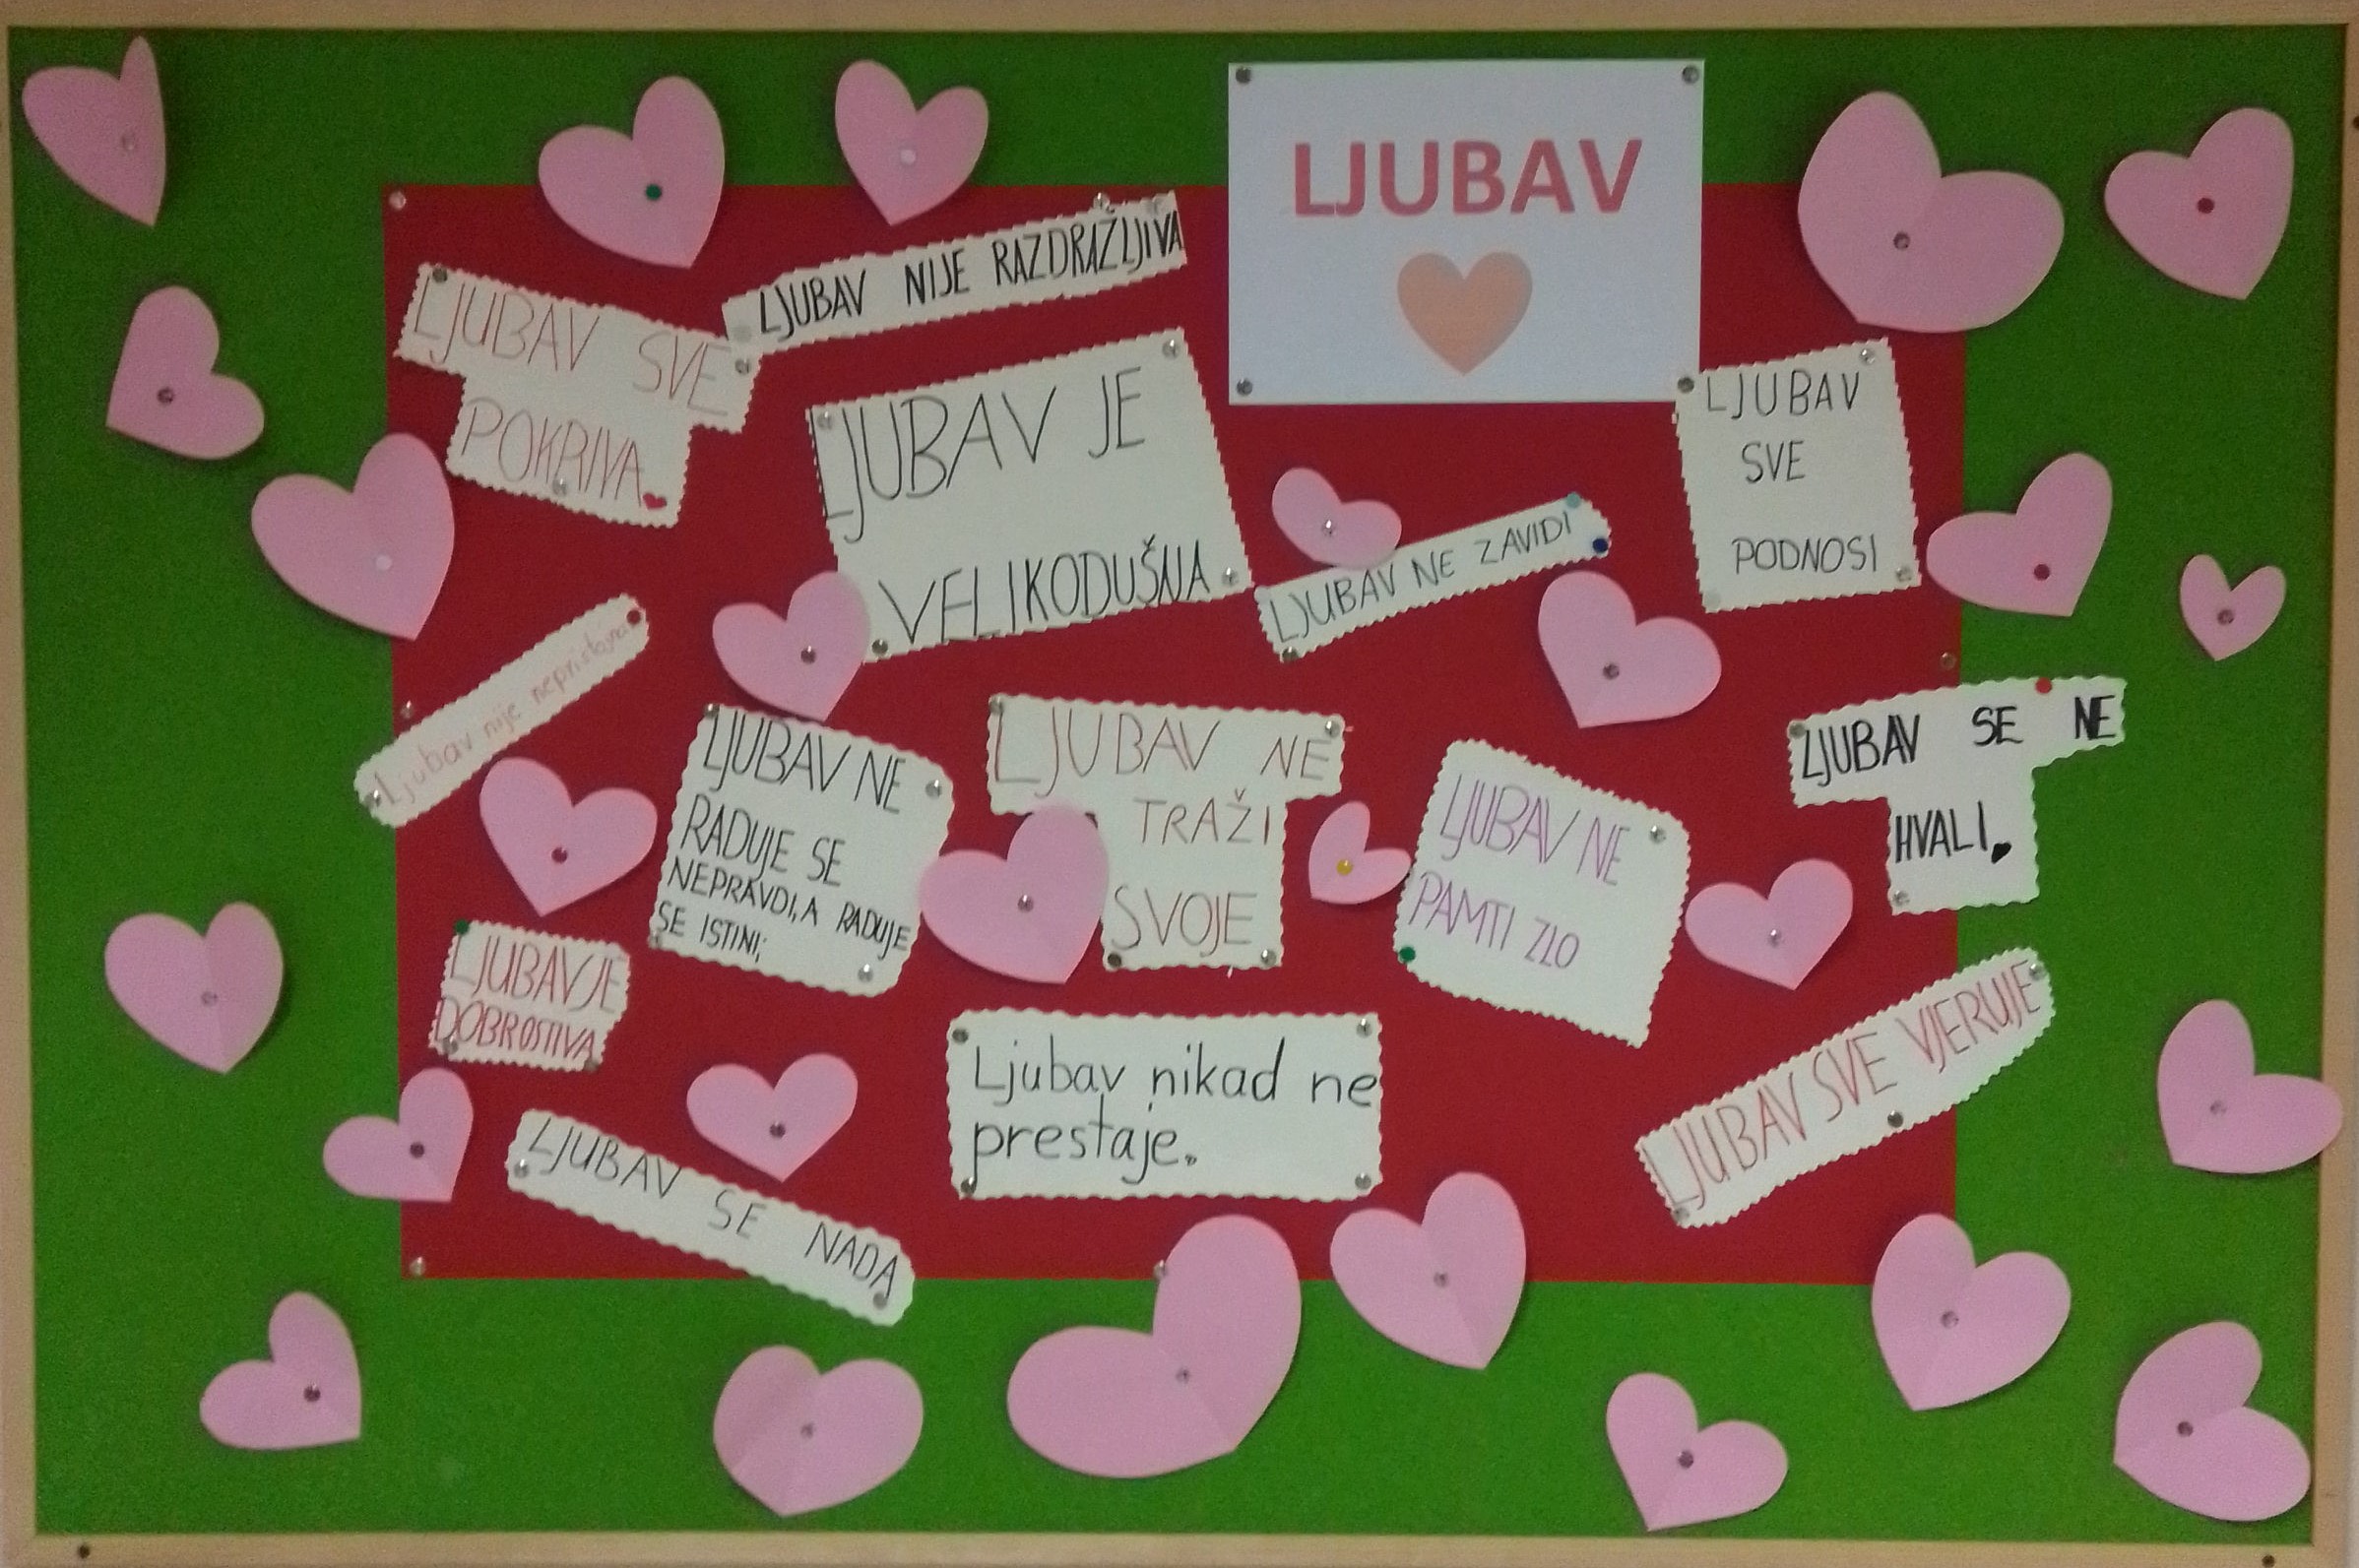 LJUBAV
LJUBAV NIJE RAZDRAŽLJIVA
LJUBAV SVE
POKRIVA
LJUBAV JE
VELIKODUŠNA
LJUBAV
SVE
PODNOSI
LJUBAV NE ZAVIDI
Ljubav nije nepristojna
LJUBAV NE
RADUJE SE
NEPRAVDI, A RADUJE
SE ISTINI;
LJUBAV NE
TRAŽI
SVOJE
LJUBAV NE
PAMTI ZLO
LJUBAV SE NE
HVALI
LJUBAV JE
DOBROSTIVA
Ljubav nikad ne
prestaje.
LJUBAV SVE VJERUJE
LJUBAV SE NADA